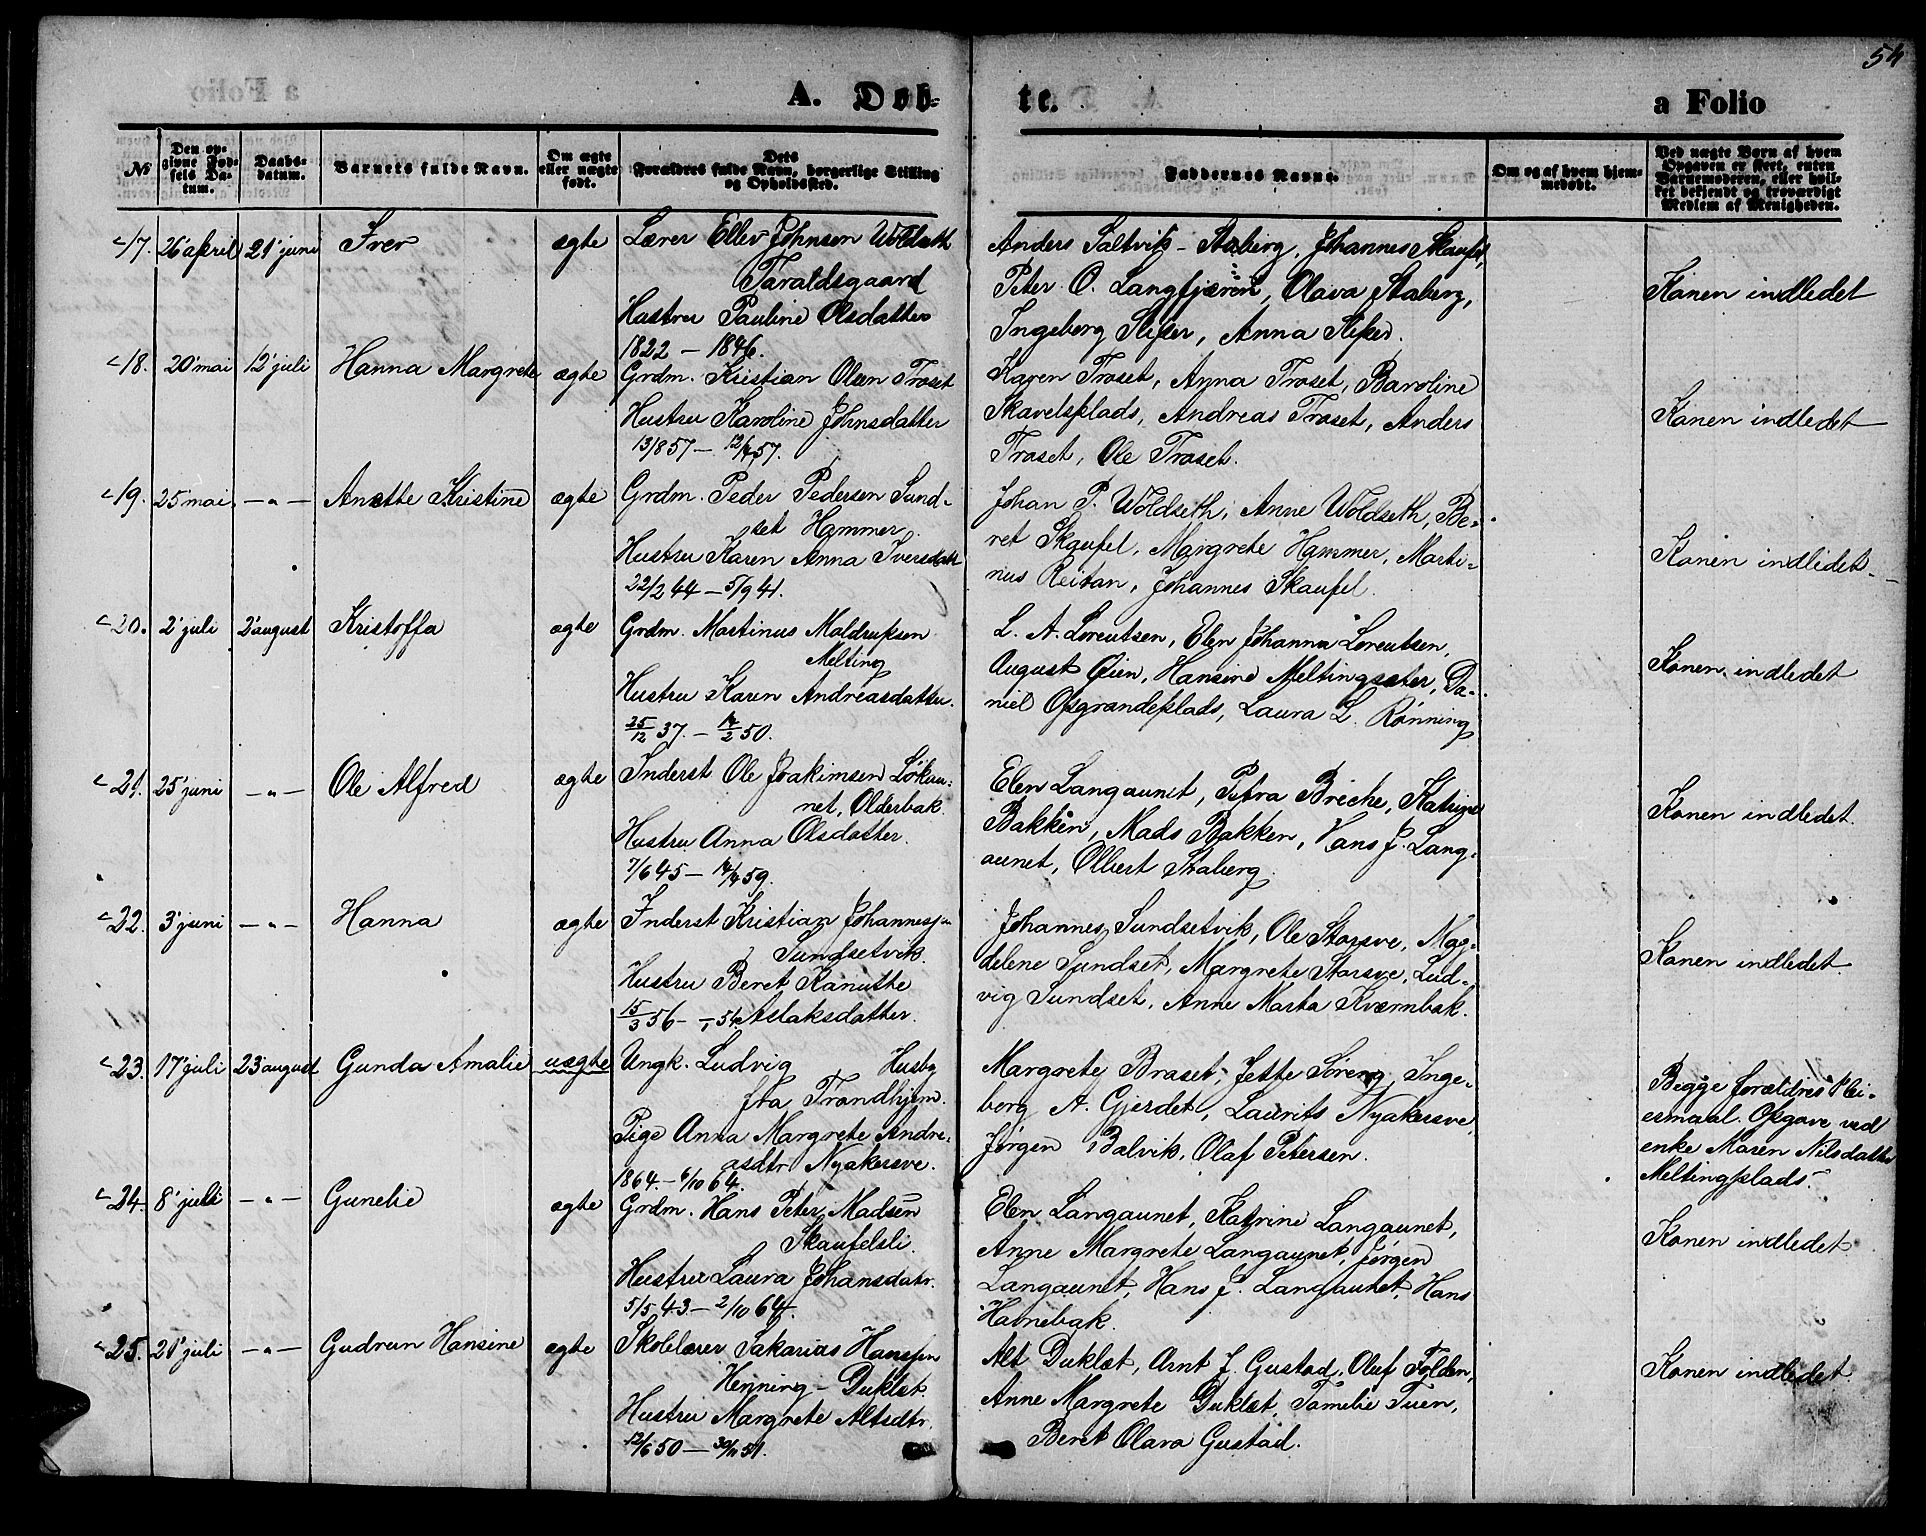 54
A. Døb-
te.
a Folio
№
Den op-
givne Fød-
sels Da-
tum.
Daabs-
datum.
Barnets fulde Navn.
Om ægte
eller uægte
født.
Dets
Forældres fulde Navn, borgerlige Stilling
og Opholdssted.
Faddernes Navne.
Om og af hvem hjem-
medøbt.
Ved uægte Børn af hvem
Opgaven er skeet, enten
Barnemoderen, eller hvil-
ket bekjendt og troværdigt
Medlem af Menigheden.
17. 26' april 21' juni Iver ægte
Lærer Ellev Johnsen Woldseth
Taraldsgaard
Hustru Pauline Olsdatter
1822 - 1846.
Anders Saltvik - Staberg, Johannes Skaufel,
Peter O. Langfjæren, Olava Staberg,
Ingeborg Sliper, Anna Sliper.
Konen indledet
18. 20' mai 12' juli Hanna Margrete ægte
Grdm. Kristian Olsen Troset
Hustru Karoline Johnsdatter
13/8 57 - 57.
Karen Troset, Anna Troset, Baroline
Skavelsplads, Andreas Troset, Anders
Troset, Ole Troset.
Konen indledet
19. 25' mai -"- Anette Kristine ægte
Grdm. Peder Pedersen Sund-
set Hammer
Hustru Karen Anna Iversdatt
22/2 44 - 5/9 41.
Johan P. Woldseth, Anne Woldseth, Be-
ret Skaufel, Margrete Hammer, Marti-
nus Reitan, Johannes Skaufel.
Konen indledet
20. 2' juli 2' august Kristoffa ægte
Grdm. Martinus Meldruksen
Melting
Hustru Karen Andreasdatter.
25/12 37. - 50.
L. A. Lorentsen, Elen Johanna Lorentsen,
August Øien, Hansine Meltingsæter, Da-
niel Opgrandeplads, Laura L. Rønning
Konen indledet
21. 25' juni -"- Ole Alfred ægte
Inderst Ole Joakimsen Løkau-
net, Olderbak
Hustru Anna Olsdatter.
7/6 45 - 59.
Elen Langaunet, Petra Breche, Katrine
Bakken, Mads Bakken, Hans J. Lang-
aunet, Olbert Staberg
Konen indledet.
22. 3' juni -"- Hanna ægte
Inderst Kristian Johannesen
Sundsetvik.
Hustru Beret Kanutte
15/3 56 - Aslaksdatter.
Johannes Sundsetvik, Ole Storsve, Mag-
delene Sundset, Margrete Storsve, Lud-
vig Sundset, Anne Marta Kværnbak.
Konen indledet
23. 17' juli 23' august Gunda Amalie uægte
Ungk. Ludvig Husby
fra Trondhjem.
Pige Anna Margrete Andre-
asdtr Nyakersve.
1864. - 6/10 64.
Margrete Braset, Jette Søreng, Inge-
borg A. Gjerdet, Laurits Nyakersve,
Jørgen Balvik, Olaf Petersen.
Begge forældres 1' lei-
ermaal. Opgave ved
enke Maren Nilsdatter
Meltingplads.
24. 8' juli -"- Gunelie ægte
Grdm. Hans Peter Madsen
Skaufelsli.
Hustru Laura Johansdatr.
5/5 43 - 2/10 64.
Elen Langaunet, Katrine Langaunet,
Anne Margrete Langaunet, Jørgen
Langaunet, Hans J. Langaunet, Hans
Havnebak.
Konen indledet
25. 21' juli -"- Gudrun Hansine ægte
Skolelærer Sakarias Hanssen
Henning - Duklæt
Hustru Margrete Altsdtr.
12/6 50 - 30/11 51.
Alt Duklæt, Arnt J. Gustad, Oluf Folden,
Anne Margrete Duklæt, Tamelie Tuen,
Beret Olava Gustad.
Konen indledet.